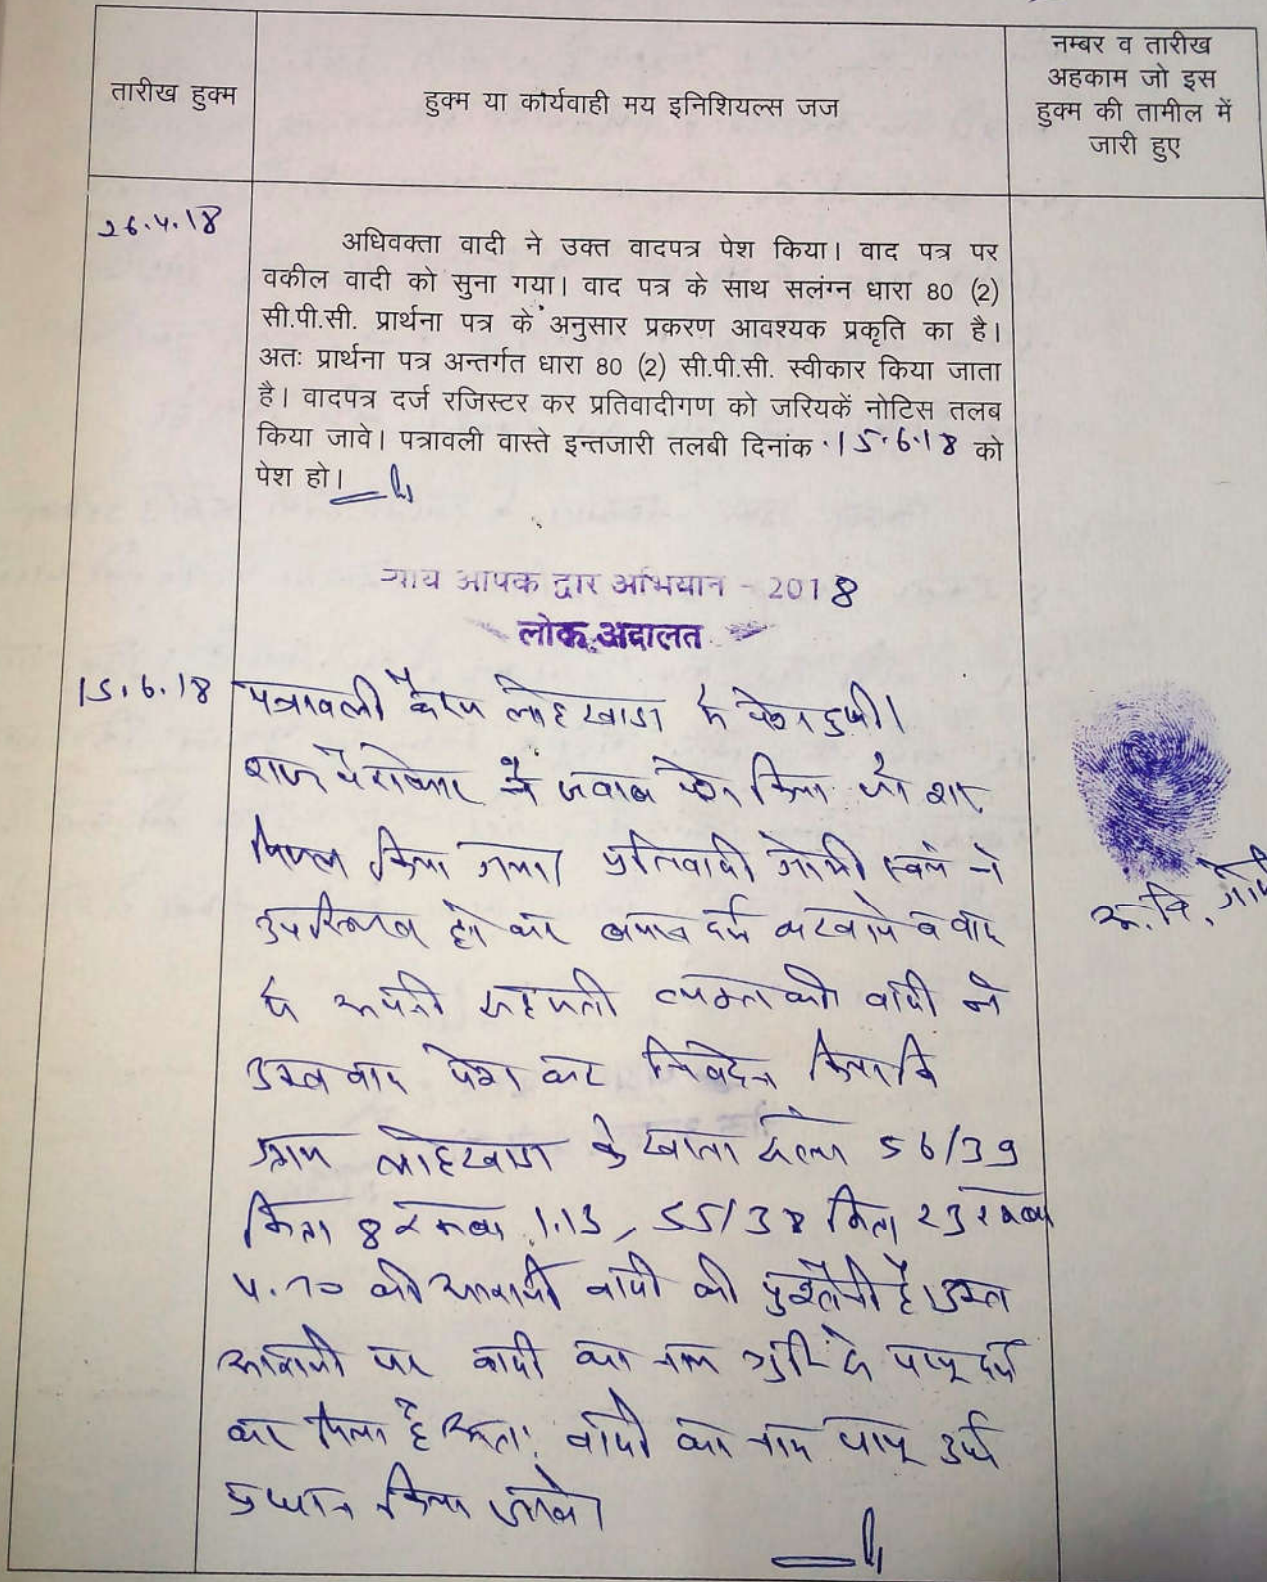 तारीख हुक्म
हुक्म या कार्यवाही मय इनिशियल्स जज
नम्बर व तारीख
अहकाम जो इस
हुक्म की तामील में
जारी हुए
26.4.18
अधिवक्ता वादी ने उक्त वादपत्र पेश किया। वाद पत्र पर
वकील वादी को सुना गया। वाद पत्र के साथ सलंग्न धारा 80 (2)
सी.पी.सी. प्रार्थना पत्र के अनुसार प्रकरण आवश्यक प्रकृति का है।
अतः प्रार्थना पत्र अन्तर्गत धारा 80 (2) सी.पी.सी. स्वीकार किया जाता
है। वादपत्र दर्ज रजिस्टर कर प्रतिवादीगण को जरियकें नोटिस तलब
किया जावे। पत्रावली वास्ते इन्तजारी तलबी दिनांक 15.6.18 को
पेश हो।
न्याय आपके द्वार अभियान - 2018
लोक अदालत
15.6.18
पत्रावली कैम्प लोहखाडा में पेश हुयी।
राज पैरोकार ने जवाब पेश किया जो शा
मिल किया गया। प्रतिवादी गोपी स्वयं ने
उपस्थित हो कर बयान दर्ज करवाये व वाद
में अपनी सहमती व्यक्त की वादी ने
उक्त वाद पेश कर निवेदन किया कि
ग्राम लोहखाडा के खाता संख्या 56/39
किता 8 रकबा 1.13, 55/38 किता 23 रकबा
4.70 की आराजी वादी की पुश्तैनी है। उक्त
आराजी पर वादी का नाम त्रुटि से पप्पू दर्ज
कर दिया है अतः वादी का नाम पप्पू उर्फ
किया जावे।
अ. नि.